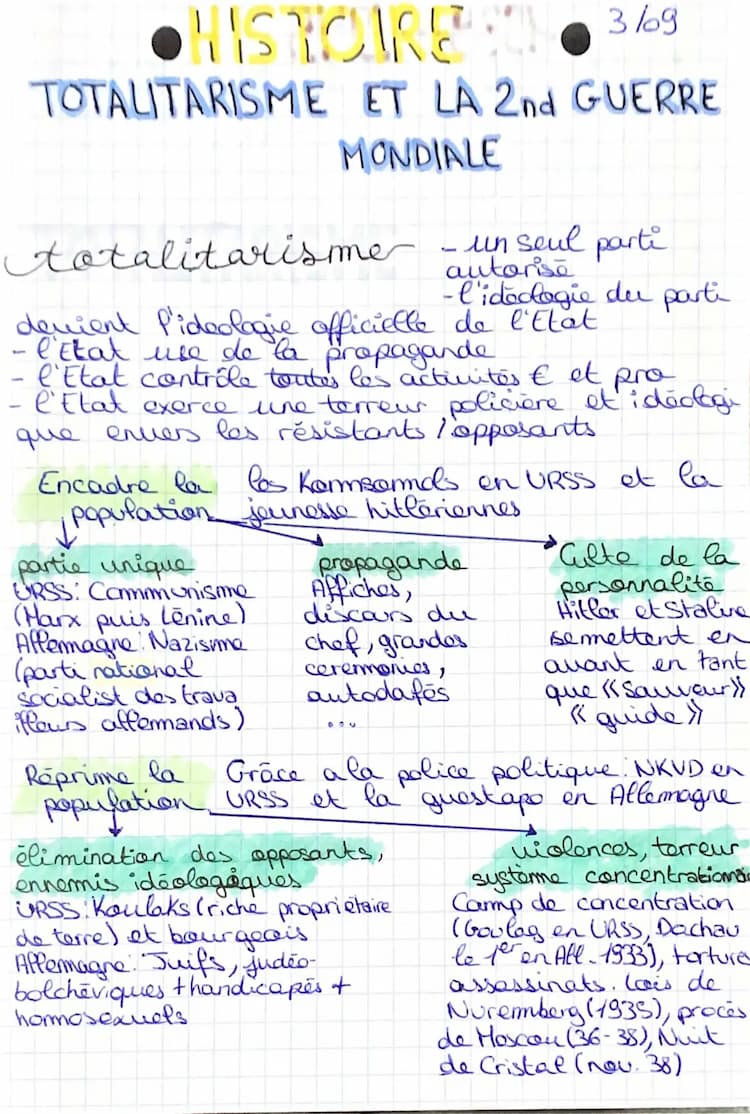 HISTOIRE
3/09
TOTALITARISME ET LA 2nd GUERRE
MONDIALE
totalitarisme - un seul parti
autorisé
- l'idéologie du parti
devient l'ideologie officielle de l'Etat
- l'Etat use de la propagande
- l'Etat contrôle toutes les activités € et pro
- l'Etat exerce une terreur policière et idéologi
que envers les résistants / opposants
Encadre la
population
les Komsomols en URSS et la
jeunesse hitlériennes
partie unique
URSS: Communisme
(Marx puis Lénine)
Allemagne: Nazisme
(parti national
socialist des trava
illeurs allemands)
propagande
Affiches,
discours du
chef, grandes
ceremonies,
autodafés
...
Culte de la
personnalité
Hitler et Staline
se mettent en
avant en tant
que «Sauveur»
« guide »
Réprime la
population
Grâce a la police politique: NKVD en
URSS et la guestapo en Allemagne
élimination des opposants,
ennemis idéologiques
URSS: Koulaks (riche propriétaire
de terre) et bourgeois
Allemagne: Juifs, judéo-
bolchéviques + handicapés +
homosexuels
violences, terreur
système concentrationna
Camp de concentration
(Goulag en URSS, Dachau
le 1er en All. 1933), torture
assassinats. Lois de
Nuremberg (1935), procès
de Moscou (36-38), Nuit
de Cristal (nov. 38)